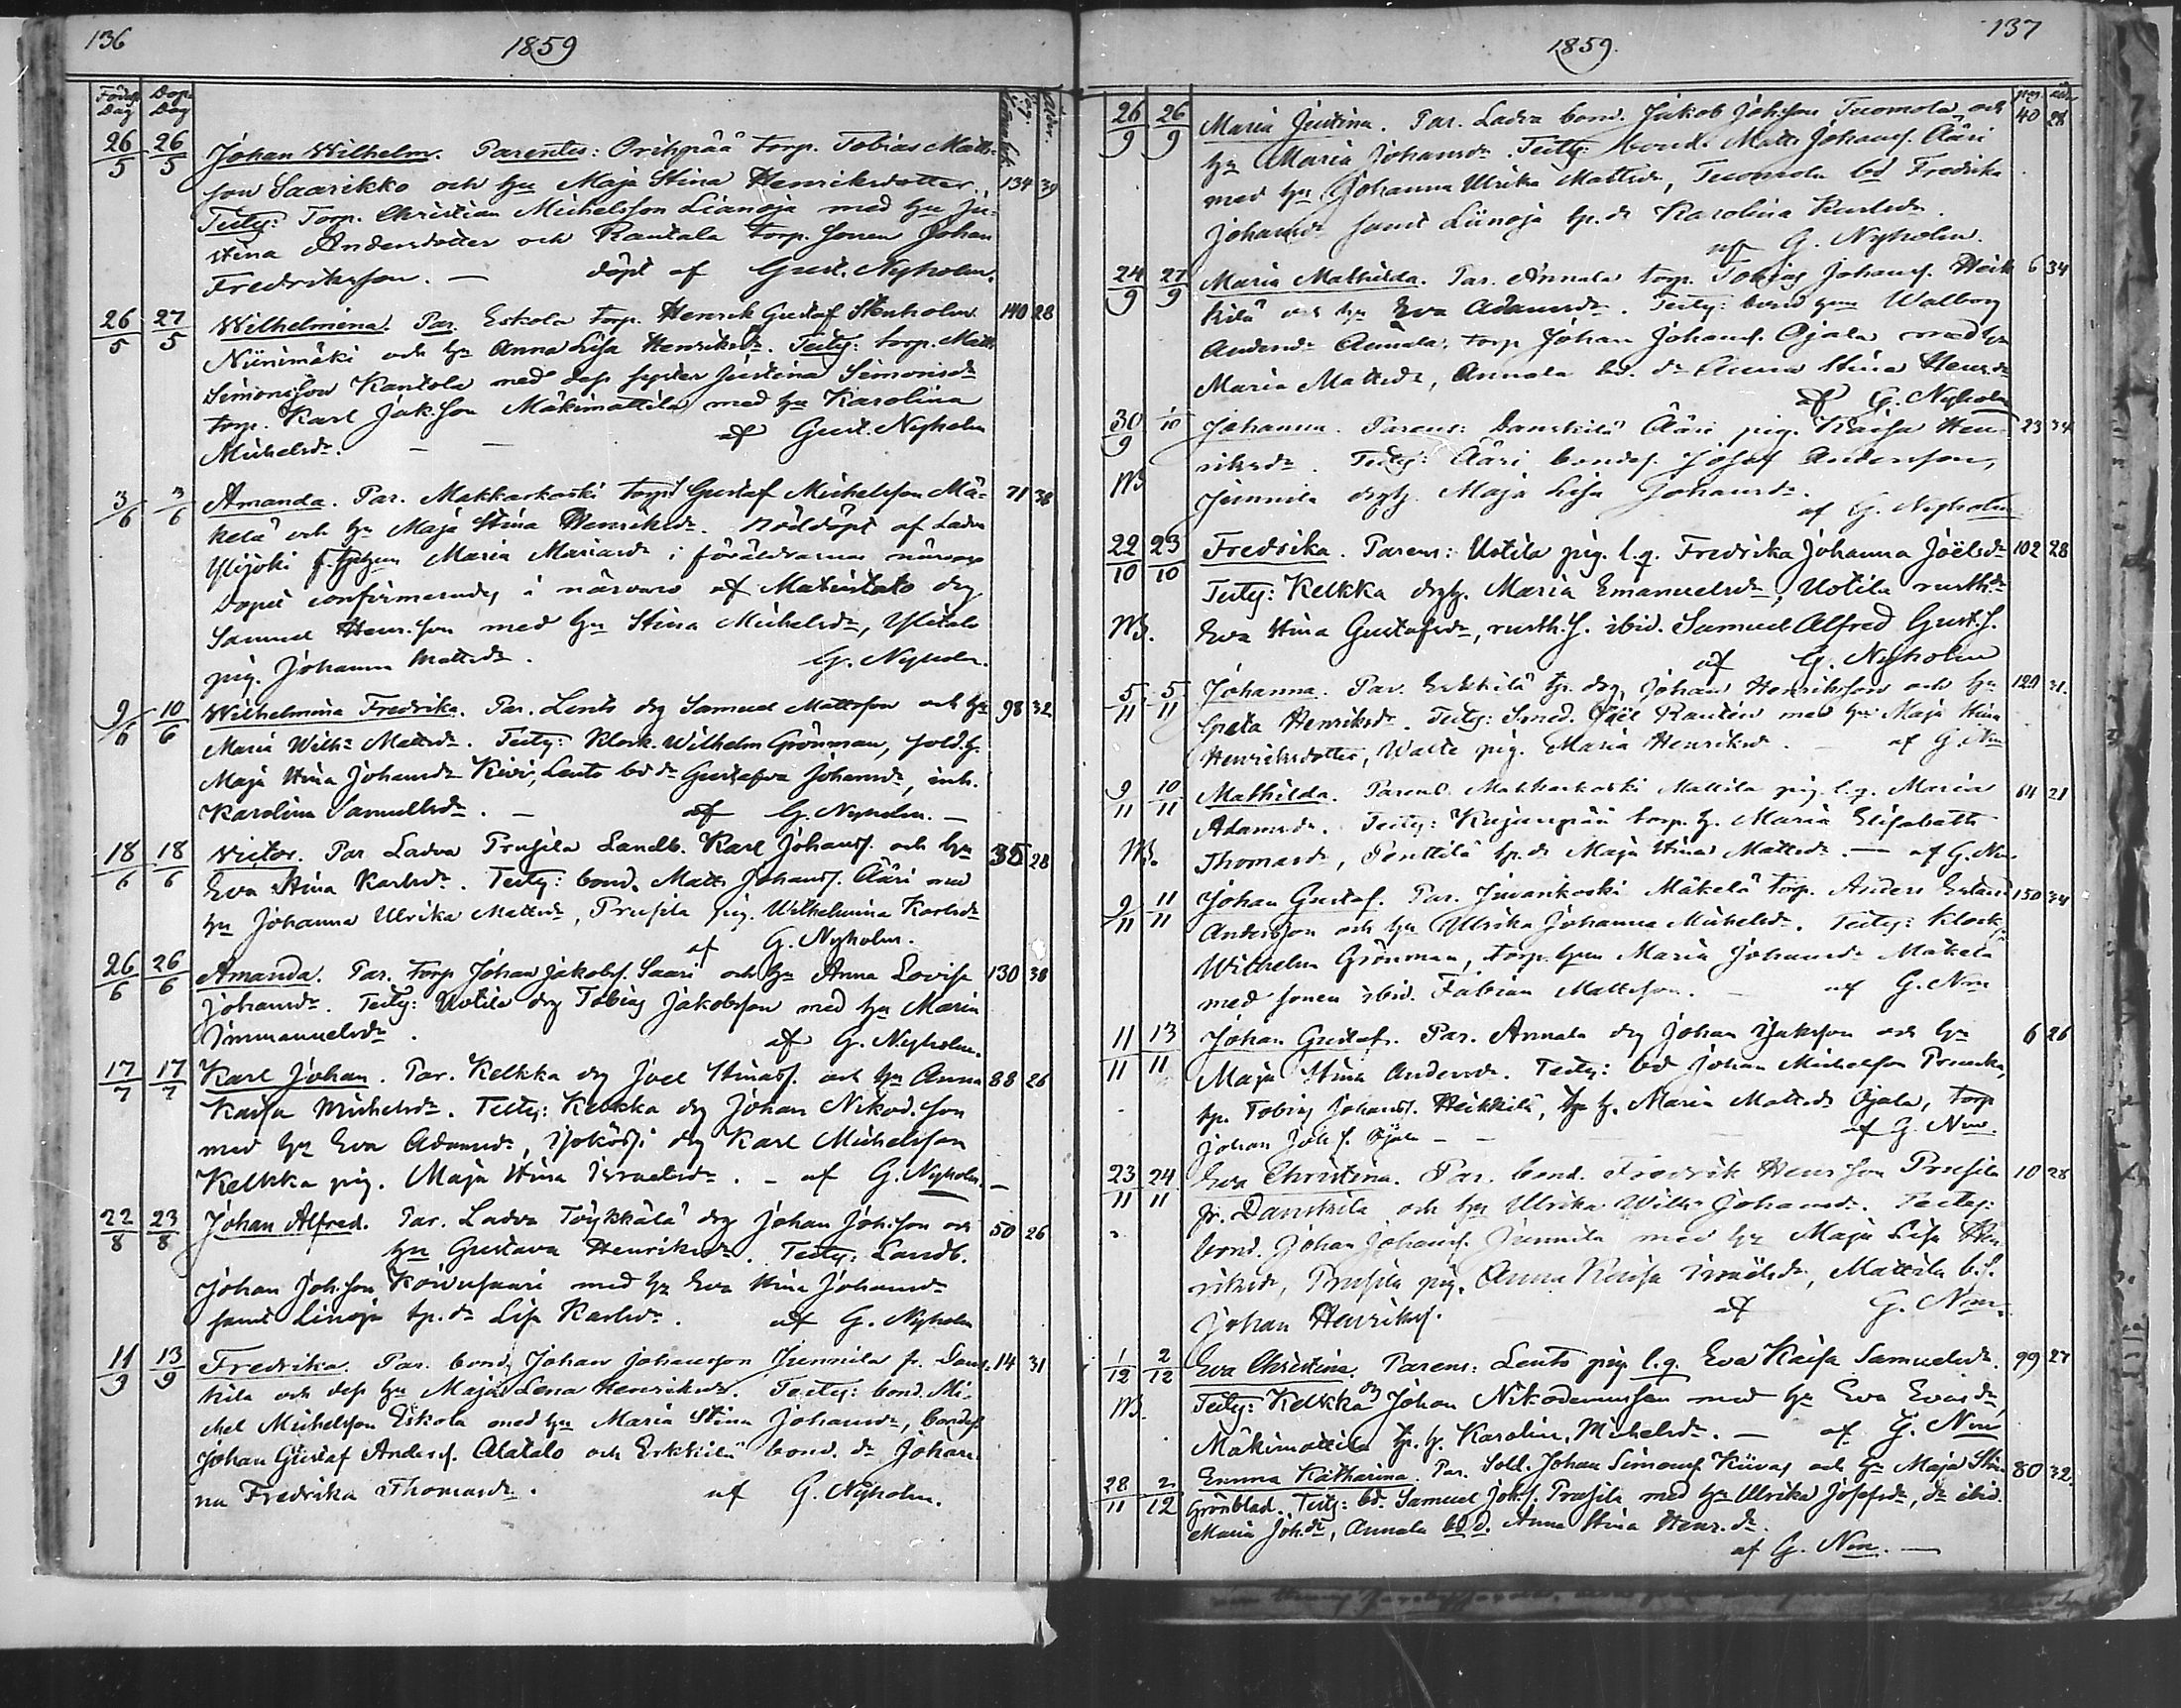 136
1859
Födelse Dag
Dop Dag
pag.
Ålder.
26/5 26/5 Johan Wilhelm. Parentes: Orihpää torp. Tobias Matts-
son Saarikko och hu Maja Stina Henriksdotter. 134 39
Testg: Torp. Christian Michelsson Lianoja med hu Ju-
stina Andersdotter och Rautala torp. sonen Johan
Fredriksson. — döpt af Gust. Nyholm.
26/5 27/5 Wilhelmina. Par. Eskola torp. Henrik Gustaf Stenholm 140 28
Niinimäki och hu Anna Lisa Henriksdr. Testg: torp. Matts
Simonsson Kantola med dess syster Justina Simonsdr
torp. Karl Jak.son Mäkimattila med hu Karolina
Michelsdr. — — af Gust. Nyholm
3/6 3/6 Amanda. Par. Makkarkoski torp. Gustaf Michelsson Mä- 71 38
kelä och hu Maja Stina Henriksdr. Nöddöpt af Ladva
Ylijoki Maria Mariasdr i föräldrarnas närvaro
Dopet confirmerades i närvaro af Matintalo drg
Samuel Henr.son med hu Stina Michelsdr, Ylitalo
pig. Johanna Mattsdr. G. Nyholm.
9/6 10/6 Wilhelmina Fredrika. Par. Lento drg Samuel Mattsson och hu 98 32
Maria Wilh:a Mattsdr. Testg: Klock. Wilhelm Grönman, sold.h.
Maja Stina Johansdr Kivi, Lento bd dr Gustafva Johansdr, inh.
Karolina Samuelsdr. — af G. Nyholm. —
18/6 18/6 Victor. Par Ladva Prusila Landb. Karl Johanss. och hu 35 28
Eva Stina Karlsdr. Testg: bond. Matts Johanss. Ääri med
hu Johanna Ulrika Mattsdr, Prusila pig. Wilhelmina Karlsdr
af G. Nyholm.
26/6 26/6 Amanda. Par. torp Johan Jakobss. Saari och hu Anna Lovisa 130 38
Johansdr. Testg: Uotila drg Tobias Jakobsson med hu Maria
Immanuelsdr. af G. Nyholm.
17/7 17/7 Karl Johan. Par. Kelkka drg Joel Stinass. och hu Anna 88 26
Kaisa Michelsdr. Testg: Kelkka drg Johan Nikod.son
med hu Eva Adamsdr, drg Karl Michelsson
Kelkka pig. Maja Stina Israelsdr. — af G. Nyholm. —
22/8 23/8 Johan Alfred. Par. Ladva Töykkälä drg Johan Joh.son och 50 26
hu Gustava Henriksdr. Testg: Landb.
Johan Joh.son Koivusaari med hu Eva Stina Johansdr
samt Linoja tp. dr Lisa Karlsdr. af G. Nyholm
11/9 13/9 Fredrika. Par. bond. Johan Johansson Junnila fr. Dans- 14 31
kila och dess hu Maja Lena Henriksdr. Testg: bond. Mi-
chel Michelsson Eskola med hu Maria Stina Johansdr, bondes.
Johan Gustaf Anderss. Alatalo och Erkkilä bond. dr Johan-
na Fredrika Thomasdr. af G. Nyholm.
137
1859.
pag. ålder
26/9 26/9 Maria Justina. Par. Ladva bond. Jakob Joh.son Tuomola och 40 28
hu Maria Johansdr. Testg: bond. Matts Johanss. Ääri
med hu Johanna Ulrika Mattsdr, Tuomola bd Fredrika
Johansdr samt Liinoja tp. dr Karolina Karlsdr.
af G. Nyholm.
24/9 27/9 Maria Mathilda. Par. Annala torp. Tobias Johanss. Heik- 6 34
kilä och hu Eva Adamsdr. Testg: bond Walborg
Andersdr Annala, torp Johan Johanss. Ojala med hu
Maria Mattsdr, Annala bd. dr Anna Stina Henr.dr
af G. Nyholm
30/9 1/10 Johanna. Parens: Danskilä Ääri pig. Kaisa Hen- 23 34
riksdr. Testg: Ääri bondes. Josef Andersson,
NB Junnila drg.h. Maja Lisa Johansdr.
af G. Nyholm
22/10 23/10 Fredrika. Parens: Uotila pig. l.q. Fredrika Johanna Joëlsdr 102 28
Testg: Kelkka drg.h. Maria Emanuelsdr, Uotila rusth.dr
NB. Eva Stina Gustafsdr, rusth.s. ibid. Samuel Alfred Gust.s.
af G. Nyholm
5/11 5/11 Johanna. Par. Erkkilä tp. drg. Johan Henriksson och hu 120 31.
Greta Henriksdr. Testg: Smed. Joël Rantén med hu Maja Stina
Henriksdotter, Walte pig. Maria Henriksdr. — af G. Nm
9/11 10/11 Mathilda. Parens. Makkarkoski Mattila pig. l.q. Maria 64 21
Adamsdr. Testg: Kujanpää torp. h. Maria Elisabeth
NB. Thomasdr, Penttilä tp. dr Maja Stina Mattsdr. — af G. Nm
9/11 11/11 Johan Gustaf. Par. Juvankoski Mäkelä torp. Anders 150 34
Andersson och hu Ulrika Johanna Michelsdr. Testg: Klock.
Wilhelm Grönman, torp. Maria Johansdr Mäkelä
med sonen ibid. Fabian Mattsson. — af G. Nm
11/11 13/11 Johan Gustaf. Par. Annala drg Johan Isaksson och hu 6 26
Maja Stina Andersdr. Testg: bd Johan Michelsson
tp. Tobias Johanss. Heikkilä, tp h. Maria Mattsdr Ojala, torp
Johan Joh.s. Ojala — — af G. Nm.
23/11 24/11 Eva Christina. Par. bond. Fredrik Henr.son Prusila 10 28
fr. Danskila och hu Ulrika Wilh:a Johansdr. Testg:
bond. Johan Johanss. Junnila med hu Maja Lisa Hen-
riksdr, Prusila pig. Anna Kaisa Israelsdr, Mattila b.s.
Johan Henrikss. af G. Nm.
1/12 2/12 Eva Christina. Parens: Lento pig l.q. Eva Kaisa Samuelsdr. 99 27
NB. Testg: Kelkka drg Johan Nikodemusson med hu Eva Evasdr,
Mäkimattila tp. h. Karolin. Michelsdr. — af G. Nm
28/11 2/12 Emma Katharina. Par. Sold. Johan Simonss. Kiivas och hu Maja Stina 80 32.
Grönblad. Testg: bd. Samuel Joh.s. Prusila med hu Ulrika Josefsdr, dr ibid.
Maria Joh.dr, Annala bd d. Anna Stina Henr.dr.
af G. Nm. —